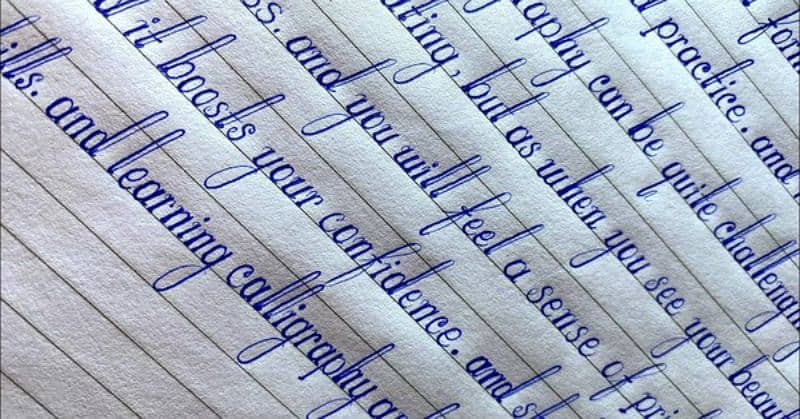 form
practice. and
raphy can be quite challengin
ating, but as when you see your beau
ss. and you will feel a sense of pri
d it boosts your confidence. and st
ills. and learning calligraphy a